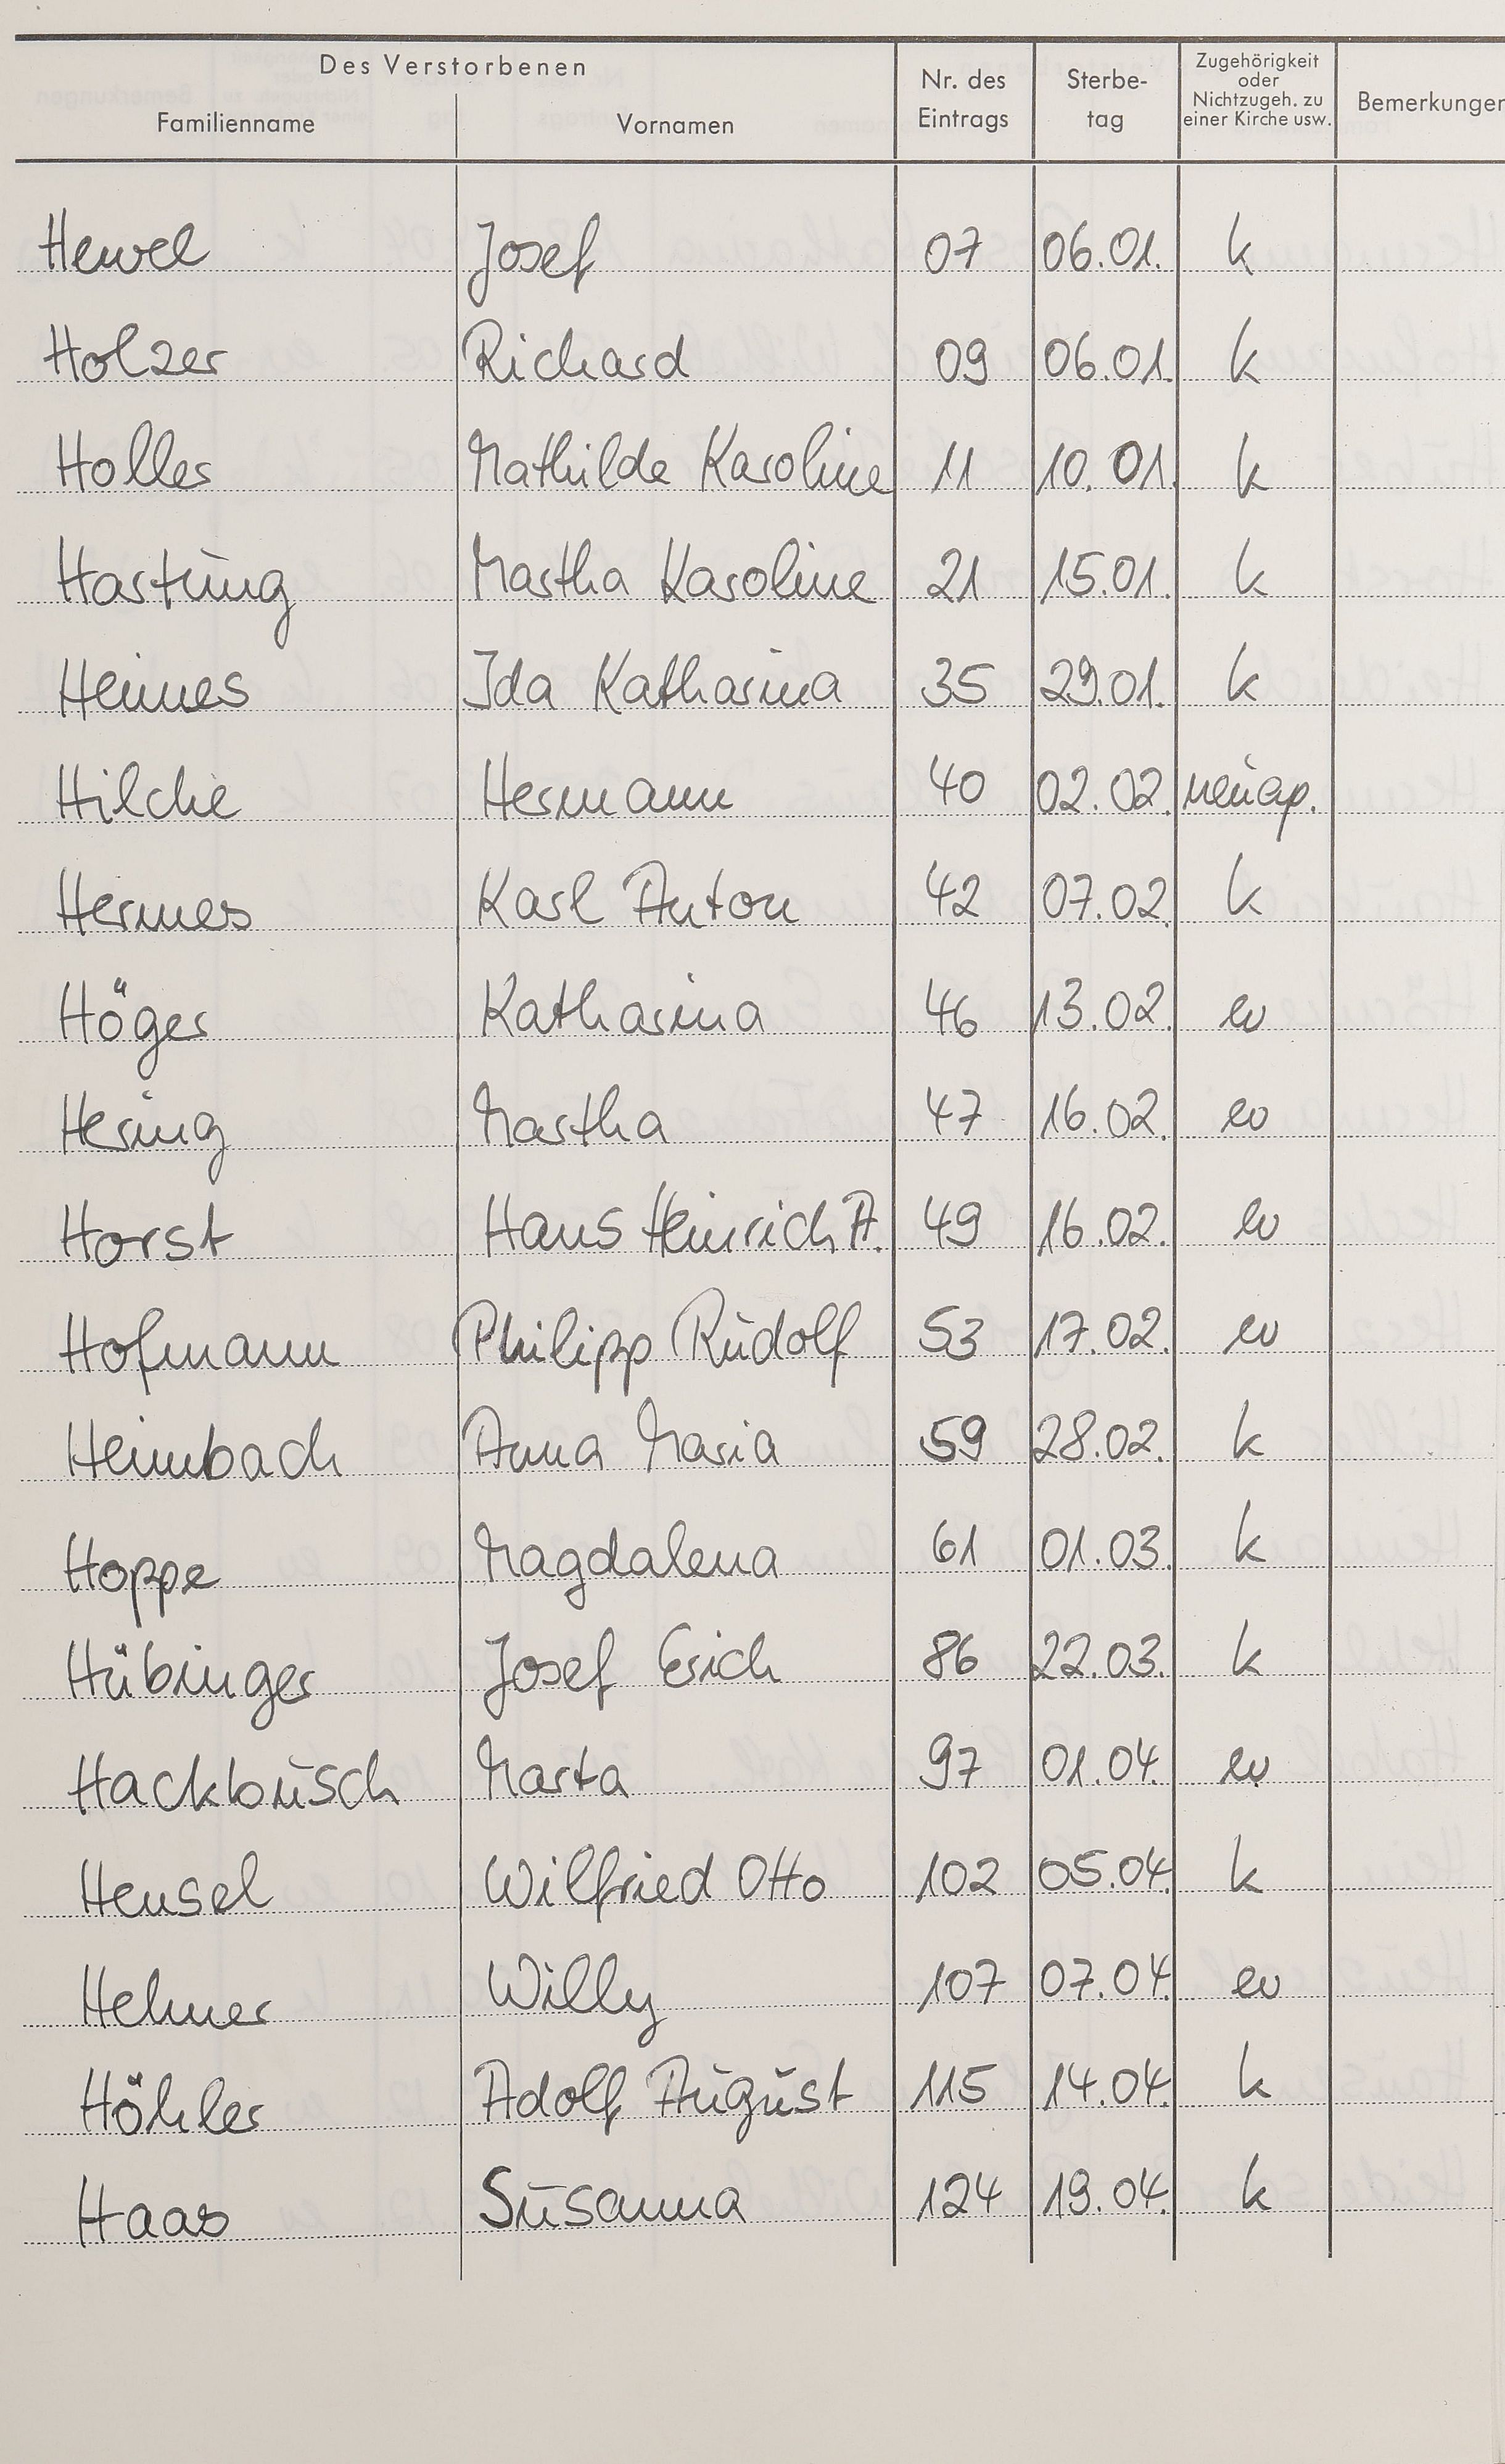 Des Verstorbenen
Familienname Vornamen Nr. des Eintrags Sterbe-tag Zugehörigkeit oder Nichtzugeh. zu einer Kirche usw. Bemerkungen
Hewel Josef 07 06.01. k
Holzer Richard 09 06.01. k
Holler Mathilde Karoline 11 10.01. k
Hartung Martha Karoline 21 15.01. k
Heimes Ida Katharina 35 29.01. k
Hilche Hermann 40 02.02. neuap.
Hermes Karl Anton 42 07.02. k
Höger Katharina 46 13.02. ev
Hering Martha 47 16.02. ev
Horst Hans Heinrich A. 49 16.02. ev
Hofmann Philipp Rudolf 53 17.02. ev
Heimbach Anna Maria 59 28.02. k
Hoppe Magdalena 61 01.03. k
Hübinger Josef Erich 86 22.03. k
Hackbusch Marta 97 01.04. ev
Hensel Wilfried Otto 102 05.04. k
Hehner Willy 107 07.04. ev
Höhler Adolf August 115 14.04. k
Haas Susanna 124 19.04. k